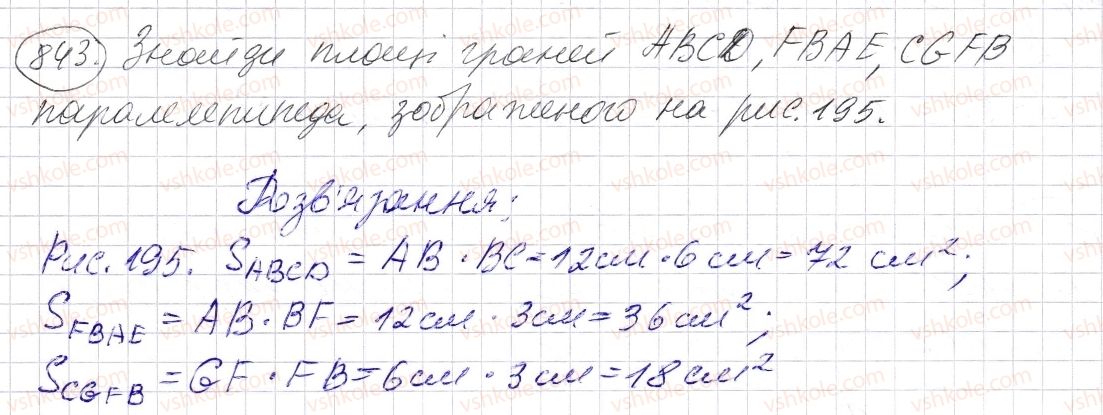 843. Знайди площі граней ABCD, FBAE, CGFB
паралелепипеда, зображеного на рис. 195.
Розв'язання:
Рис. 195. S_ABCD = AB · BC = 12 см · 6 см = 72 см²;
S_FBAE = AB · BF = 12 см · 3 см = 36 см²;
S_CGFB = GF · FB = 6 см · 3 см = 18 см²